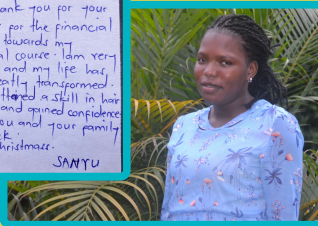 ank you for your
for the financial
towards my
al course. I am very
and my life has
eatly transformed.
a skill in hair
and gained confidence
ou and your family
k.
hristmass.
SANYU